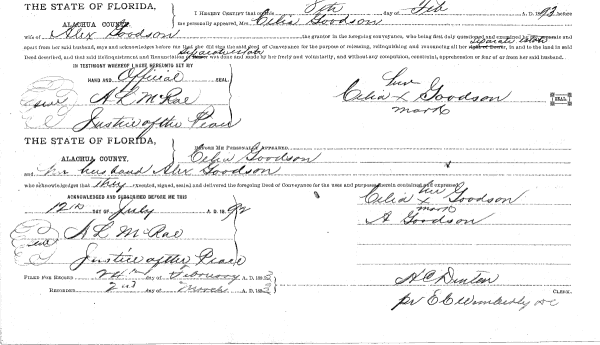 THE STATE OF FLORIDA,
ALACHUA COUNTY.
I HEREBY CERTIFY that on this 8th day of Feb A. D. 1892 before
me personally appeared, Mrs. Celia Goodson
wife of Alex Goodson the grantor in the foregoing conveyance, who being first duly questioned and examined by me separate and
apart from her said husband, says and acknowledges before me that she did this the said deed of Conveyance for the purpose of releasing, relinquishing and renouncing all her right of Dower, in and to the land in said
separate estate
Deed described, and that said Relinquishment and Renunciation of Dower was done and made by her freely and voluntarily, and without any compulsion, constraint, apprehension or fear of or from her said husband.
separate estate
IN TESTIMONY WHEREOF I HAVE HEREUNTO SET MY
HAND AND Official SEAL
her
Seal A L McRae Celia x Goodson SEAL
mark
Justice of the Peace
THE STATE OF FLORIDA,
ALACHUA COUNTY,
BEFORE ME PERSONALLY APPEARED
Celia Goodson
and her husband Alex Goodson
who acknowledged that they executed, signed, sealed and delivered the foregoing Deed of Conveyance for the uses and purposes therein contained and expressed.
ACKNOWLEDGED AND SUBSCRIBED BEFORE ME THIS
her
Celia x Goodson
mark
12th DAY OF July A. D. 1892
A Goodson
Seal A L McRae
Justice of the Peace
FILED FOR RECORD day of February A. D. 189
RECORDED 2nd day of March A. D. 189
H C Denton
CLERK.
pr E C Wimberly DC